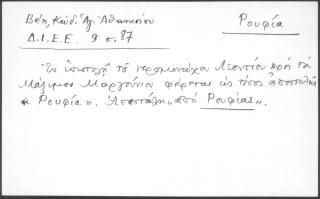 Βέη, Κώδ. Ἁγ. Ἀθανασίου
Ρουφία
Δ.Ι.Ε.Ε. 9 σ. 87
Ἐν ἐπιστολῇ τοῦ ἱερομονάχου Λεοντίου πρὸς τὸν
Μάξιμον Μαργούνιον φέρεται ὡς τόπος ἀποστολῆς
« Ρουφία ». Ἀπεστάλη „ ἀπὸ Ρουφίας „.